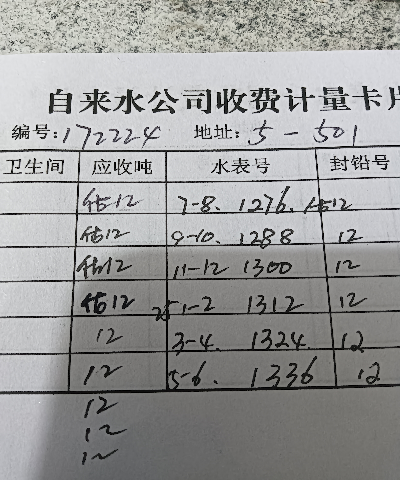 自来水公司收费计量卡片
编号:172224 地址:5-501
卫生间 应收吨 水表号 封铅号
估12 7-8. 1276. 估12
估12 9-10. 1288 12
估12 11-12 1300 12
估12 25 1-2 1312 12
12 3-4. 1324. 12
12 5-6. 1336 12
12
12
12